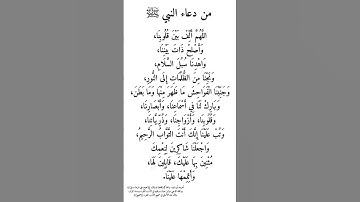 من دعاء النبي ﷺ
اللَّهُمَّ أَلِّفْ بَيْنَ قُلُوبِنَا،
وَأَصْلِحْ ذَاتَ بَيْنِنَا،
وَاهْدِنَا سُبُلَ السَّلَامِ،
وَنَجِّنَا مِنَ الظُّلُمَاتِ إِلَى النُّورِ،
وَجَنِّبْنَا الْفَوَاحِشَ مَا ظَهَرَ مِنْهَا وَمَا بَطَنَ،
وَبَارِكْ لَنَا فِي أَسْمَاعِنَا، وَأَبْصَارِنَا،
وَقُلُوبِنَا، وَأَزْوَاجِنَا، وَذُرِّيَّاتِنَا،
وَتُبْ عَلَيْنَا إِنَّكَ أَنْتَ التَّوَّابُ الرَّحِيمُ،
وَاجْعَلْنَا شَاكِرِينَ لِنِعَمِكَ
مُثْنِينَ بِهَا عَلَيْكَ، قَابِلِينَ لَهَا،
وَأَتْمِمْهَا عَلَيْنَا.